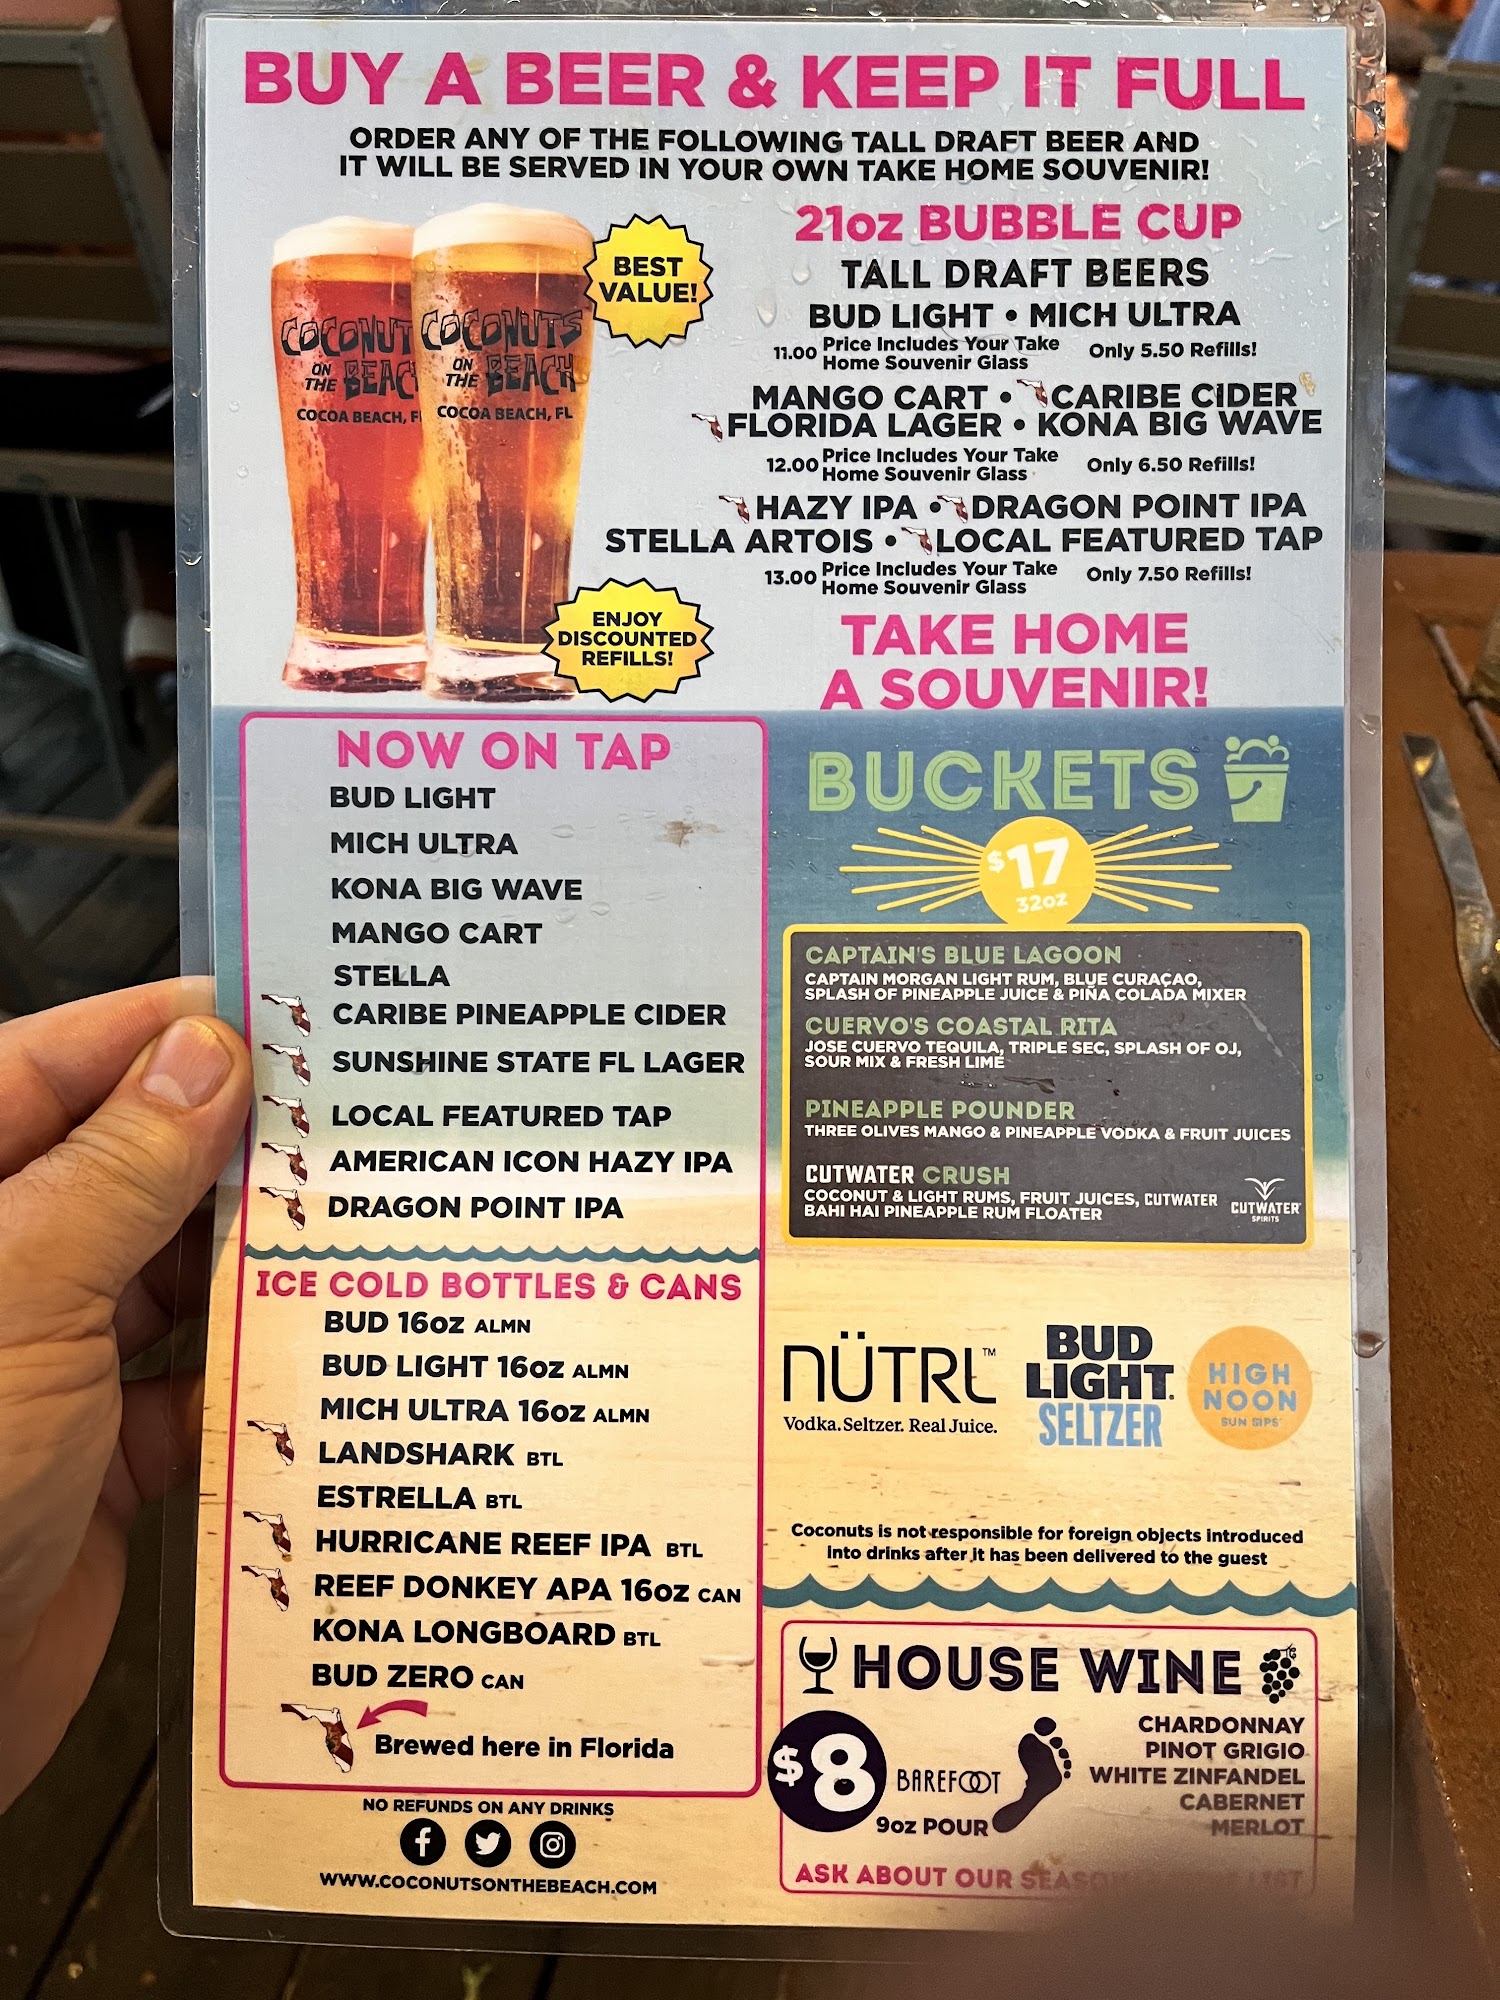 BUY A BEER & KEEP IT FULL
ORDER ANY OF THE FOLLOWING TALL DRAFT BEER AND
IT WILL BE SERVED IN YOUR OWN TAKE HOME SOUVENIR!
COCONUT
ON
THE BEAC
COCOA BEACH, F
COCONUTS
ON
THE BEACH
COCOA BEACH, FL
BEST
VALUE!
ENJOY
DISCOUNTED
REFILLS!
21oz BUBBLE CUP
TALL DRAFT BEERS
BUD LIGHT • MICH ULTRA
11.00 Price Includes Your Take
Home Souvenir Glass
Only 5.50 Refills!
MANGO CART • CARIBE CIDER
FLORIDA LAGER • KONA BIG WAVE
12.00 Price Includes Your Take
Home Souvenir Glass
Only 6.50 Refills!
HAZY IPA • DRAGON POINT IPA
STELLA ARTOIS • LOCAL FEATURED TAP
13.00 Price Includes Your Take
Home Souvenir Glass
Only 7.50 Refills!
TAKE HOME
A SOUVENIR!
NOW ON TAP
BUD LIGHT
MICH ULTRA
KONA BIG WAVE
MANGO CART
STELLA
CARIBE PINEAPPLE CIDER
SUNSHINE STATE FL LAGER
LOCAL FEATURED TAP
AMERICAN ICON HAZY IPA
DRAGON POINT IPA
ICE COLD BOTTLES & CANS
BUD 16oz ALMN
BUD LIGHT 16oz ALMN
MICH ULTRA 16oz ALMN
LANDSHARK BTL
ESTRELLA BTL
HURRICANE REEF IPA BTL
REEF DONKEY APA 16oz CAN
KONA LONGBOARD BTL
BUD ZERO CAN
Brewed here in Florida
NO REFUNDS ON ANY DRINKS
WWW.COCONUTSONTHEBEACH.COM
BUCKETS
$17
32oz
CAPTAIN'S BLUE LAGOON
CAPTAIN MORGAN LIGHT RUM, BLUE CURAÇAO,
SPLASH OF PINEAPPLE JUICE & PIÑA COLADA MIXER
CUERVO'S COASTAL RITA
JOSE CUERVO TEQUILA, TRIPLE SEC, SPLASH OF OJ,
SOUR MIX & FRESH LIME
PINEAPPLE POUNDER
THREE OLIVES MANGO & PINEAPPLE VODKA & FRUIT JUICES
CUTWATER CRUSH
COCONUT & LIGHT RUMS, FRUIT JUICES, CUTWATER
BAHI HAI PINEAPPLE RUM FLOATER
CUTWATER
SPIRITS
NÜTRL™
Vodka. Seltzer. Real Juice.
BUD
LIGHT.
SELTZER
HIGH
NOON
SUN SIPS
Coconuts is not responsible for foreign objects introduced
into drinks after it has been delivered to the guest
HOUSE WINE
$8
BAREFOOT
9oz POUR
CHARDONNAY
PINOT GRIGIO
WHITE ZINFANDEL
CABERNET
MERLOT
ASK ABOUT OUR LIST